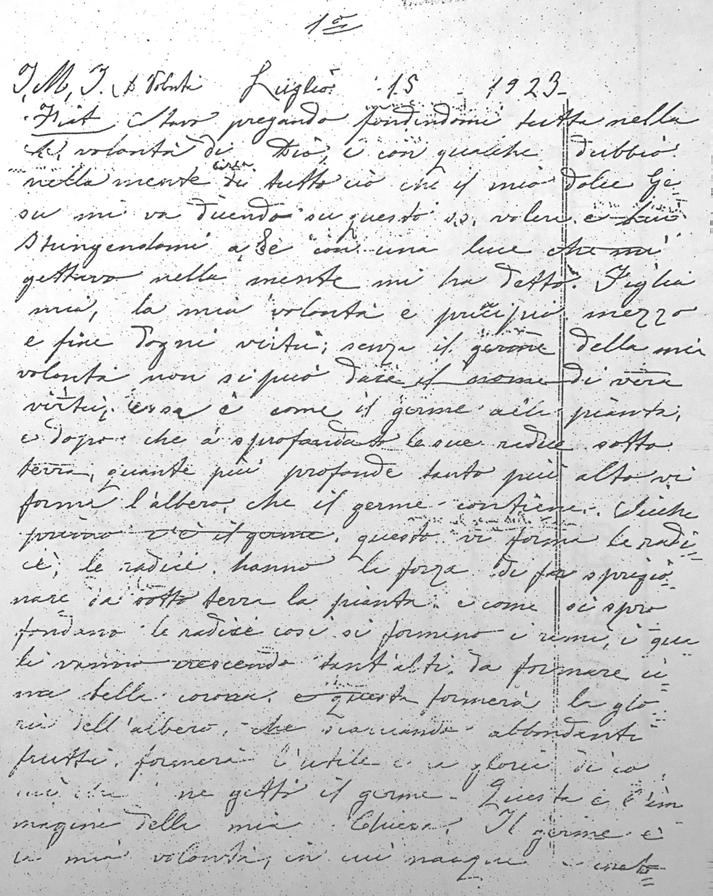 1º
J. M. J. Luglio 15 1923
Fiat Stavo pregando fondendomi tutta nella
S. volontà di Dio, e con qualche dubbio
nella mente circa di tutto ciò che il mio dolce Ge
su mi va dicendo su questo ss. volere e
Stringendomi a Se con una luce che mi
gettava nella mente mi ha detto. Figlia
mia, la mia volontà e pricipiò mezzo
e fine d'ogni virtù; senza il germe della mia
volontà non si può dare il nome di vera
virtù. Essa è come il germe alla pianta,
e dopo che à sprofondato le sue radice sotto
terra, quante più profonde tanto più alto vi
forma l'albero che il germe contiene. Sicche
primo c'è il germe. questo vi forma le radi
ce; le radice hanno la forza di far sprigio
nare da sotto terra la pianta. e come si spro
fondano le radice così si formeno i remi, i qua
li vanno crescendo tant'alti, da formare u
na bella corona, e questa formerà la glo
ria dell'albero, che scaricando abbondanti
frutti, formerà l'utile e la gloria di co
lui che ne gettò il germe. Questa e l'im
magine della mia Chiesa. Il germe è
la mia volontà, in cui nacque